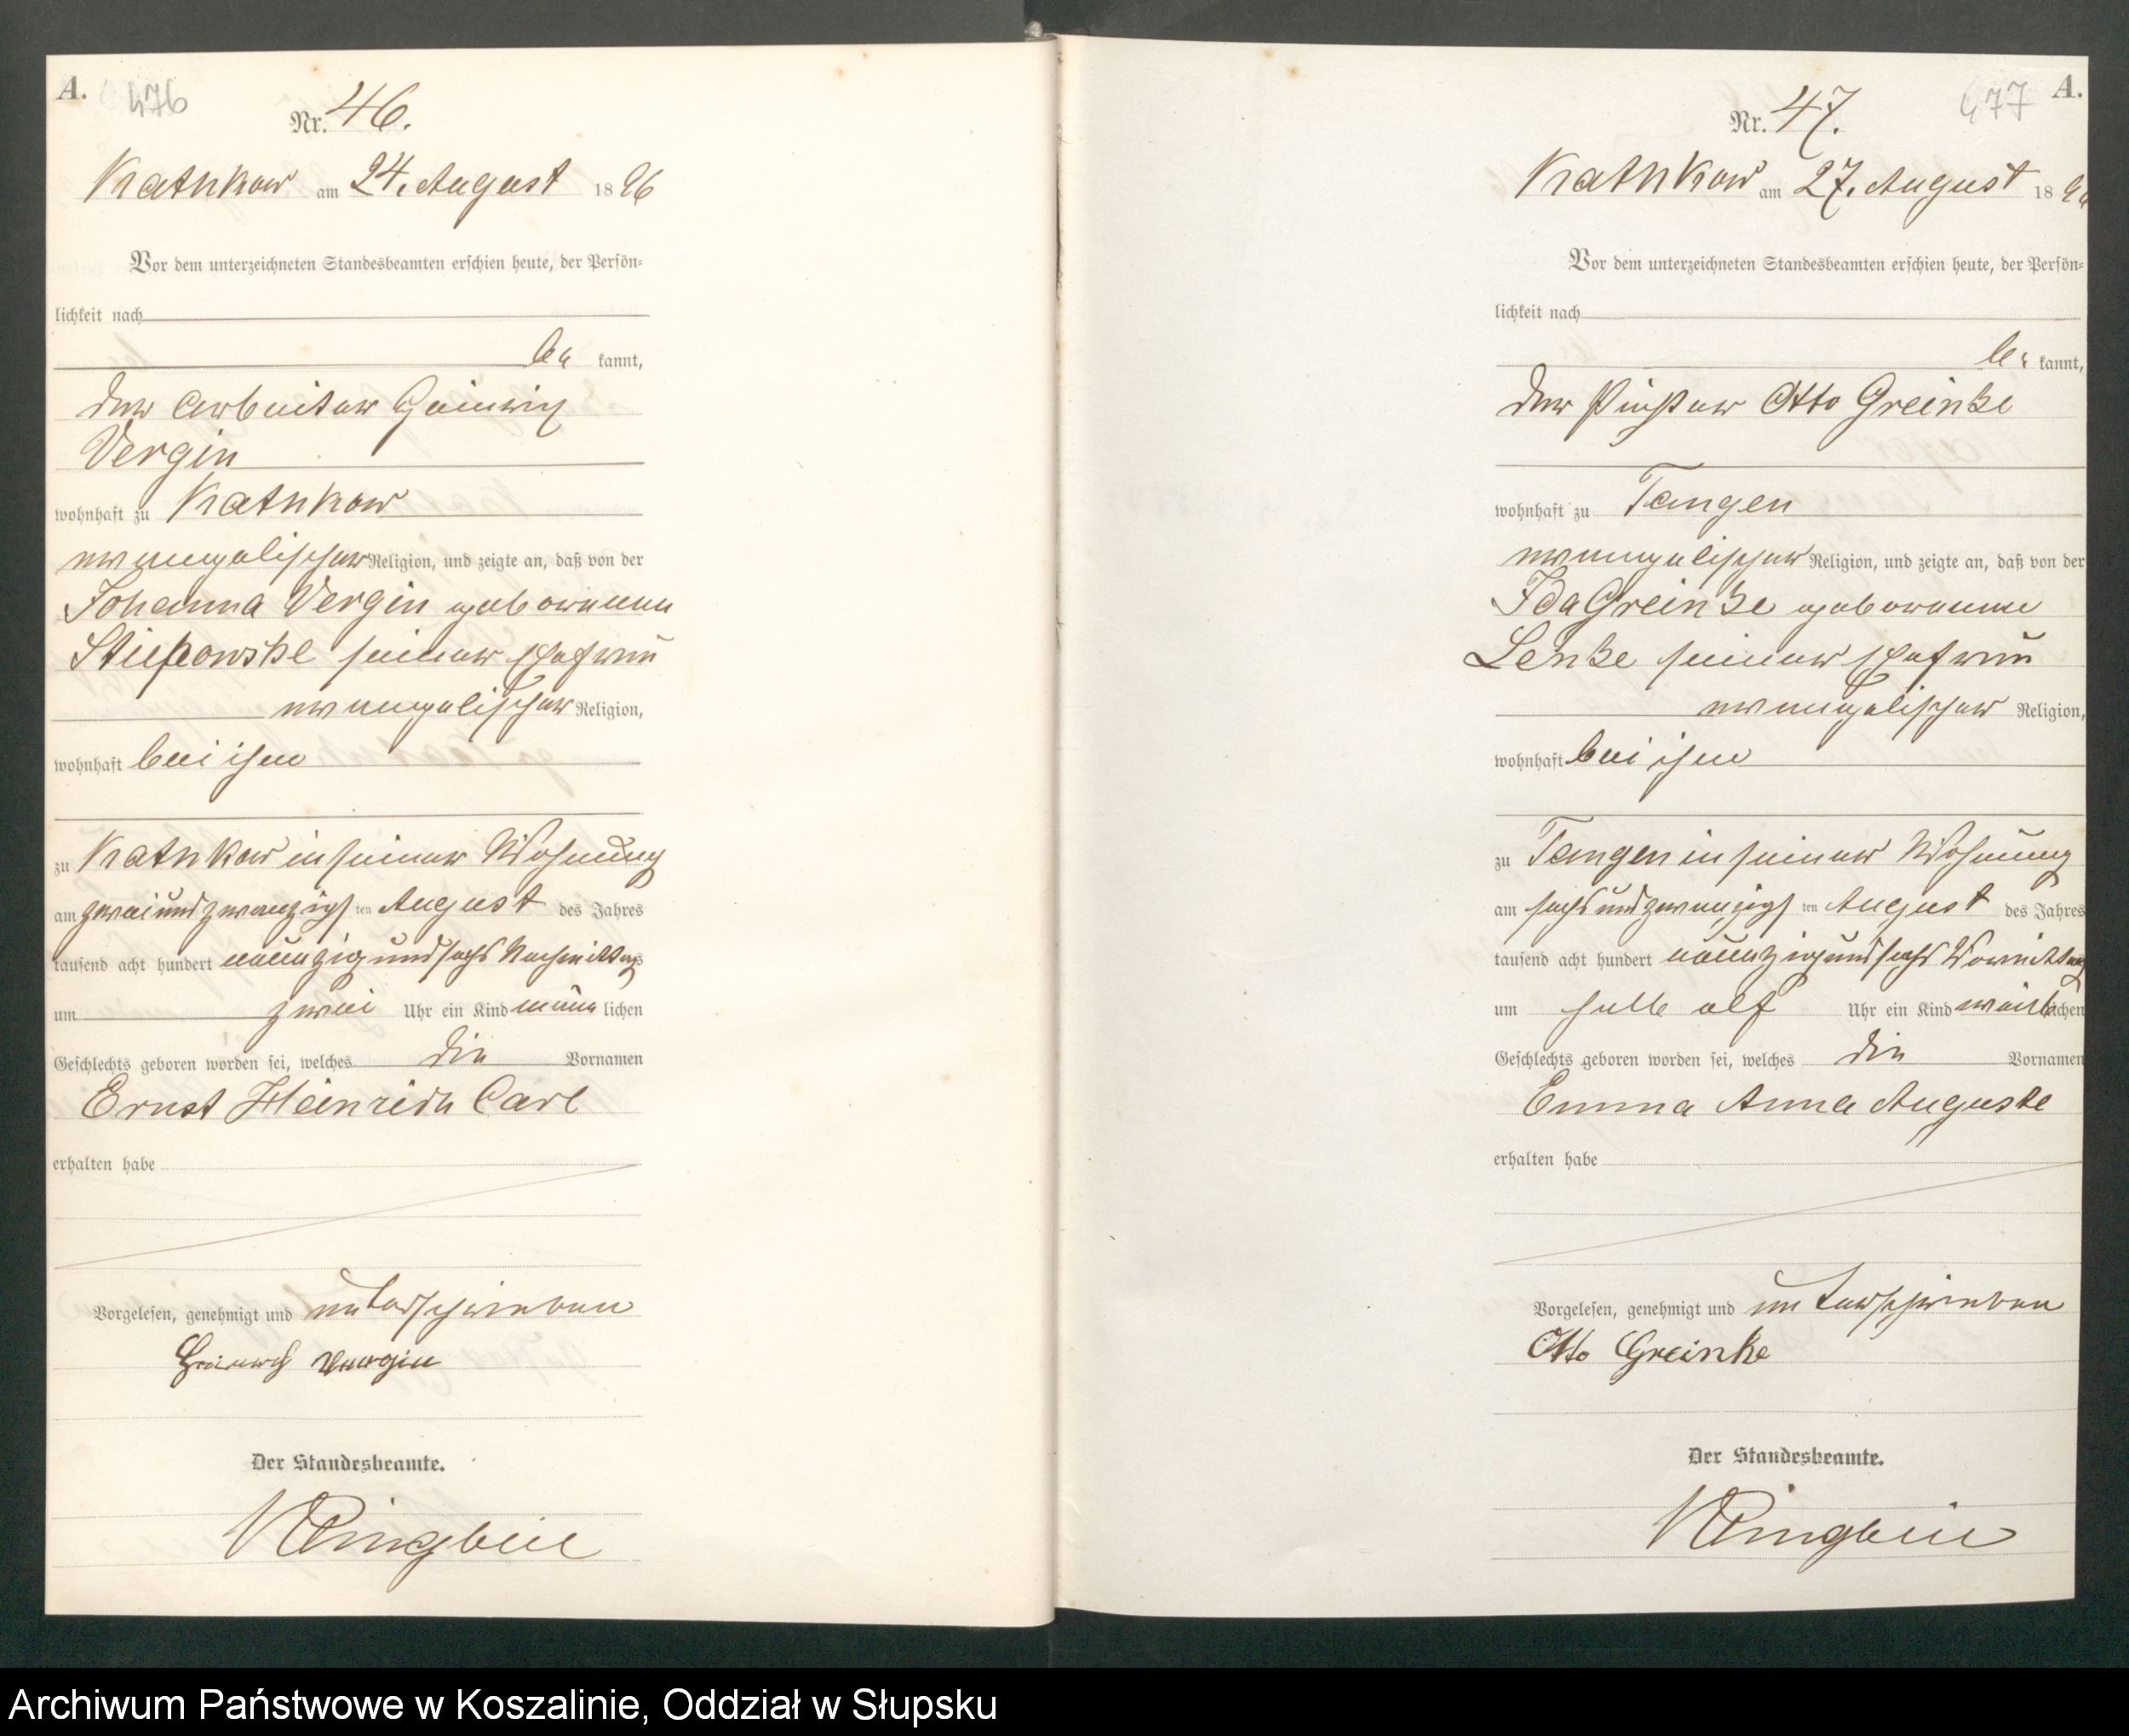 A.
476
Nr. 46.
Kathkow am 24. August 1896
Vor dem unterzeichneten Standesbeamten erschien heute, der Persön-
lichkeit nach
be kannt,
der Arbeiter Heinrich
Vergin
wohnhaft zu Kathkow
evangelischer Religion, und zeigte an, daß von der
Johanna Vergin geborenen
seiner Ehefrau
evangelischer Religion,
wohnhaft bei ihm
zu Kathkow in seiner Wohnung
am zweiundzwanzigs ten August des Jahres
tausend acht hundert neunzig und sechs Nachmittags
um zwei Uhr ein Kind männ lichen
Geschlechts geboren worden sei, welches die Vornamen
Ernst Heinrich Carl
erhalten habe
Vorgelesen, genehmigt und unterschrieben
Heinrich Vergin
Der Standesbeamte.
Klingbeil
477
A.
Nr. 47.
Kathkow am 27. August 1896
Vor dem unterzeichneten Standesbeamten erschien heute, der Persön-
lichkeit nach
be kannt,
der Otto Greinke
wohnhaft zu Tangen
evangelischer Religion, und zeigte an, daß von der
Ida Greinke geborenen
Lenke seiner Ehefrau
evangelischer Religion,
wohnhaft bei ihm
zu Tangen in seiner Wohnung
am sechsundzwanzigs ten August des Jahres
tausend acht hundert neunzig und sechs Vormittags
um halb elf Uhr ein Kind weib lichen
Geschlechts geboren worden sei, welches die Vornamen
Emma Anna Auguste
erhalten habe
Vorgelesen, genehmigt und unterschrieben
Otto Greinke
Der Standesbeamte.
Klingbeil
Archiwum Państwowe w Koszalinie, Oddział w Słupsku